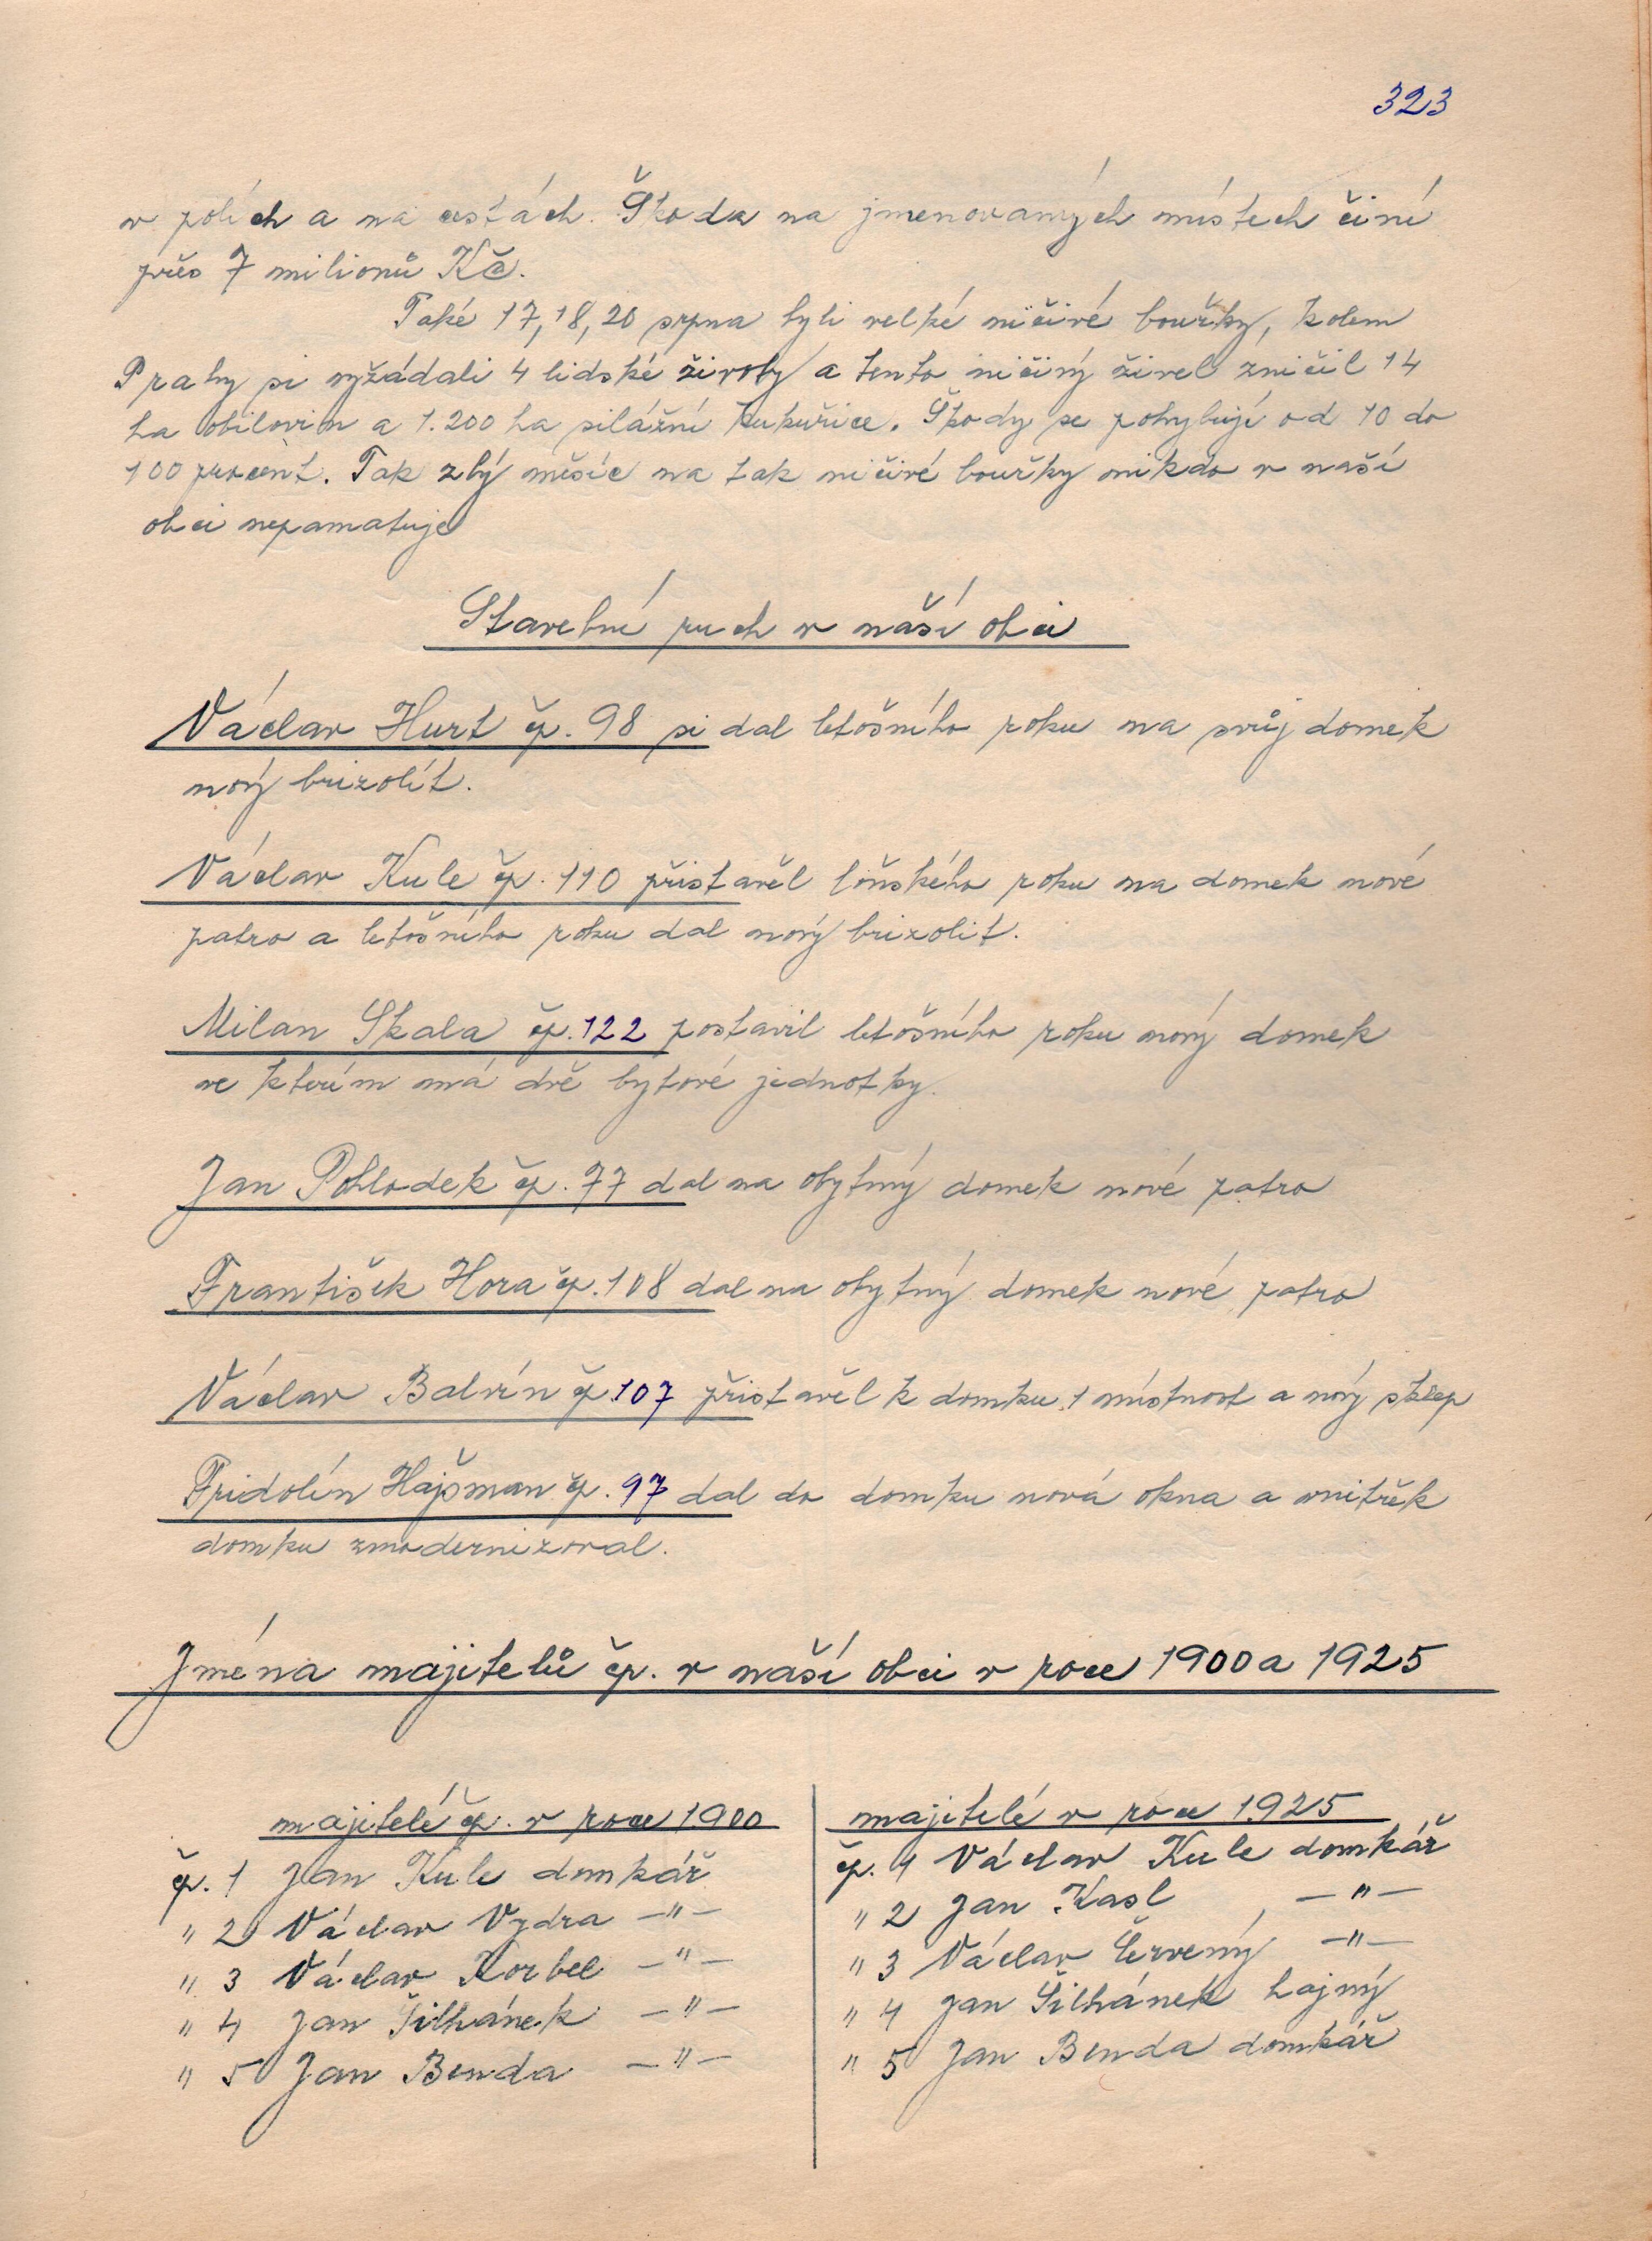 323
v polích a na cestách. Škoda na jmenovaných místech činí
přes 7 milionů Kčs.
Také 17, 18, 20 srpna byli velké ničivé bouřky, kolem
Prahy si vyžádali 4 lidské životy a tento ničivý živel zničil 14
ha obilovin a 1.200 ha silážní kukuřice. Škody se pohybují od 10 do
100 procent. Tak zlý měsíc na tak ničivé bouřky nikdo v naší
obci nepamatuje
Stavební ruch v naší obci
Václav Hurt čp. 98 si dal letošního roku na svůj domek
nový brizolít.
Václav Kule čp. 110 přistavěl loňského roku na domek nové
patro a letošního roku dal nový brizolit.
Milan Skala čp. 122 postavil letošního roku nový domek
ve kterím má dvě bytové jednotky.
Jan Pohlodek čp. 77 dal na obytný domek nové patro
František Hora čp. 108 dal na obytný domek nové patro
Václav Balvín čp 107 přistavěl k domku 1 místnost a nový sklep
Fridolín Hajšman čp. 97 dal do domku nová okna a vnitřek
domku zmodernizoval.
Jména majitelů čp. v naší obci v roce 1900 a 1925
majitelé čp. v roce 1900
čp. 1 Jan Kule domkář
" 2 Václav Vydra —"—
" 3 Václav Korbel —"—
" 4 Jan Šilhánek —"—
" 5 Jan Benda —"—
majitelé v roce 1925
čp. 1 Václav Kule domkář
" 2 Jan Kasl —"—
" 3 Václav Červený —"—
" 4 Jan Šilhánek hajný
" 5 Jan Benda domkář